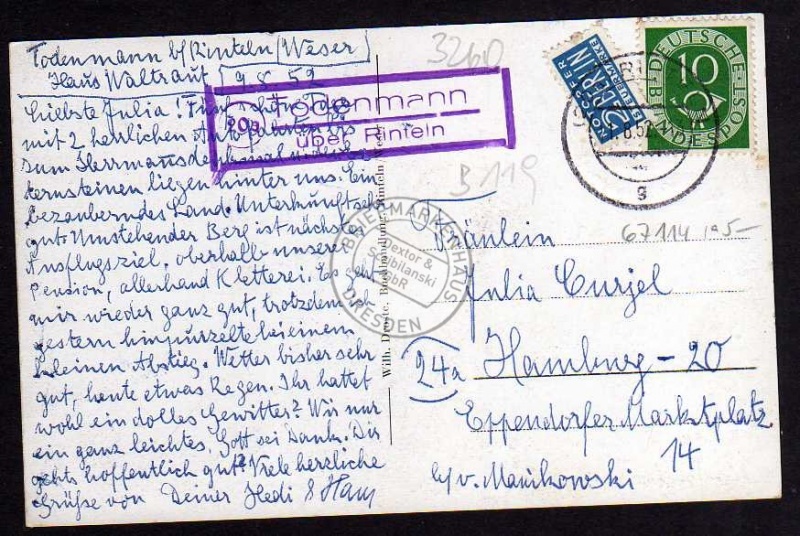 Todenmann b/Rinteln/Weser
Haus Waltraut 9.8.52
Liebste Julia! Fünf schöne Tage
mit 2 herrlichen Autofahrten bis
zum Hermannsdenkmal und den
Externsteinen liegen hinter uns. Ein
bezauberndes Land. Unterkunft sehr
gut. Umstehender Berg ist nächstes
Ausflugsziel, oberhalb unserer
Pension, allerhand Kletterei. Es geht
mir wieder ganz gut, trotzdem ich
gestern hinpurzelte bei einem
kleinen Abstieg. Wetter bisher sehr
gut, heute etwas Regen. Ihr hattet
wohl ein dolles Gewitter? Wir nur
ein ganz leichtes, Gott sei Dank. Dir
gehts hoffentlich gut? Viele herzliche
Grüße von Deiner Hedi & Hans
20a
Todenmann
über Rinteln
3260
B 119
NOTOPFER
2 BERLIN
STEUERMARKE
DEUTSCHE
BUNDESPOST
10
8.52
g
67114 195-
Fräulein
Julia Curjel
24a Hamburg-20
Eppendorfer Marktplatz
14
b/v. Manikowski
BRIEFMARKENHAUS
Dextor &
DRESDEN